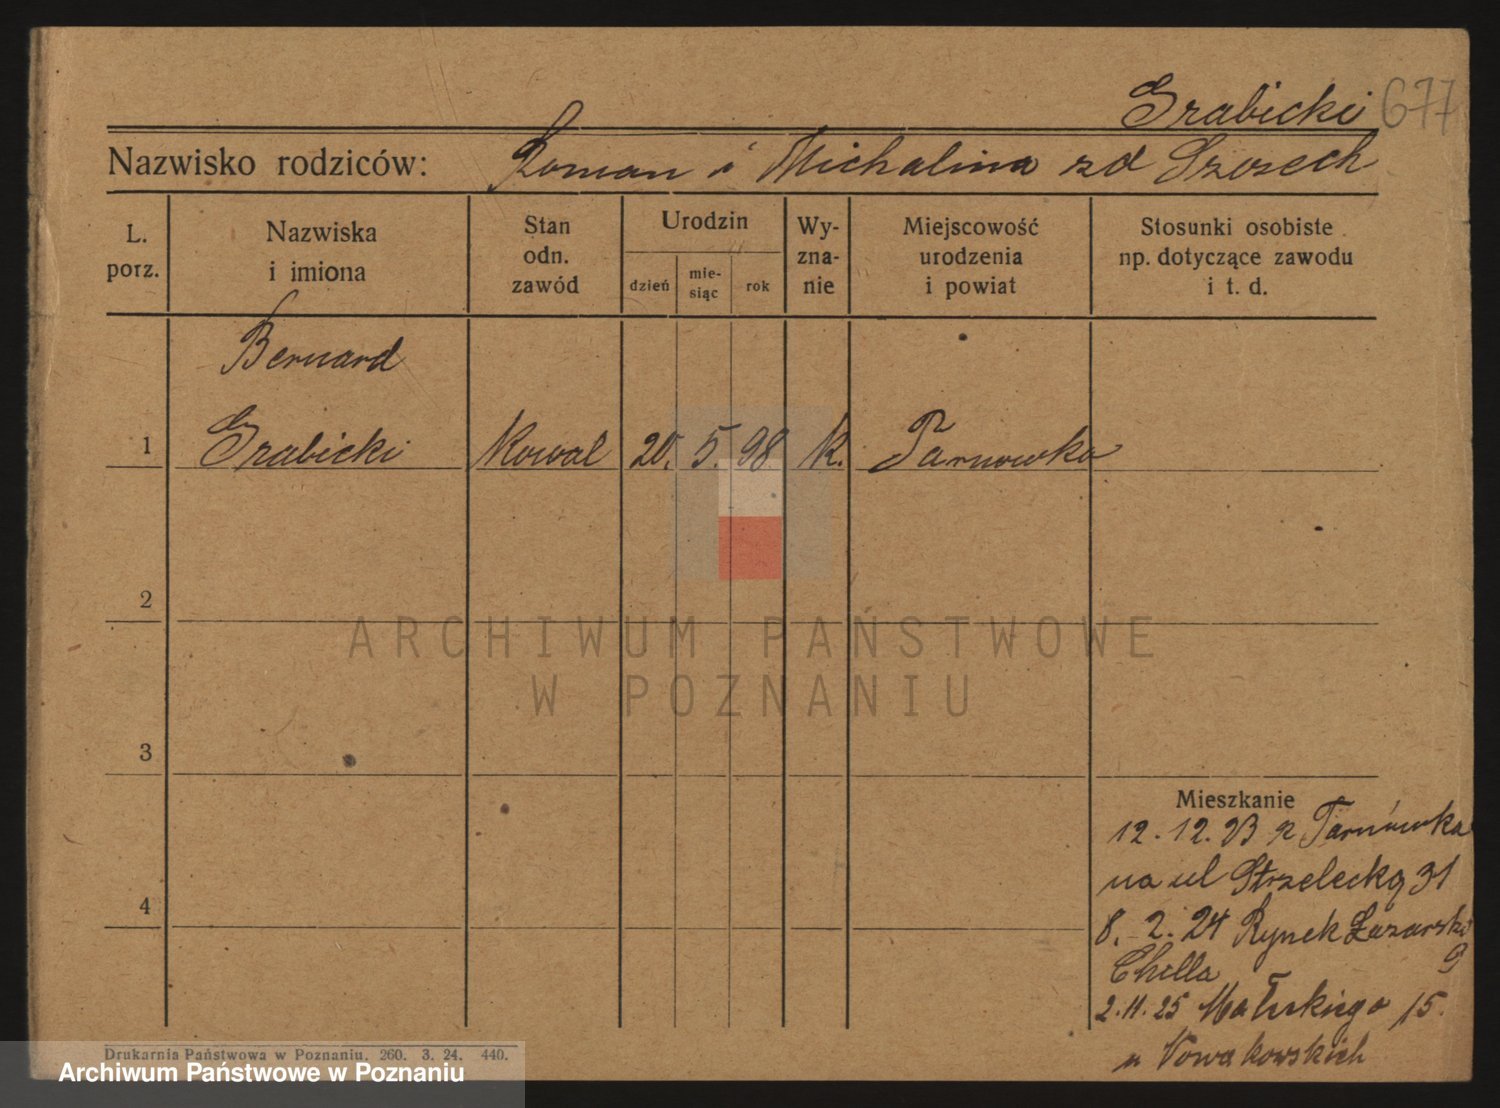 Grabicki 677
Nazwisko rodziców: Roman i Michalina zd Szosech
L. porz.
Nazwiska i imiona
Stan odn. zawód
Urodzin
dzień
mie-siąc
rok
Wy-zna-nie
Miejscowość urodzenia i powiat
Stosunki osobiste np. dotyczące zawodu i t. d.
Bernard
1 Grabicki Kowal 20. 5. 98 K. Tarnowka
2
3
4
Mieszkanie
12. 12. 23 z Tarnówka
na ul Strzelecką 31
8. 2. 24 Rynek Łazarski
9
Chella
2. 11. 25 Małeckiego 15.
u Nowakowskich
Drukarnia Państwowa w Poznaniu. 260. 3. 24. 440.
ARCHIWUM PAŃSTWOWE
W POZNANIU
Archiwum Państwowe w Poznaniu